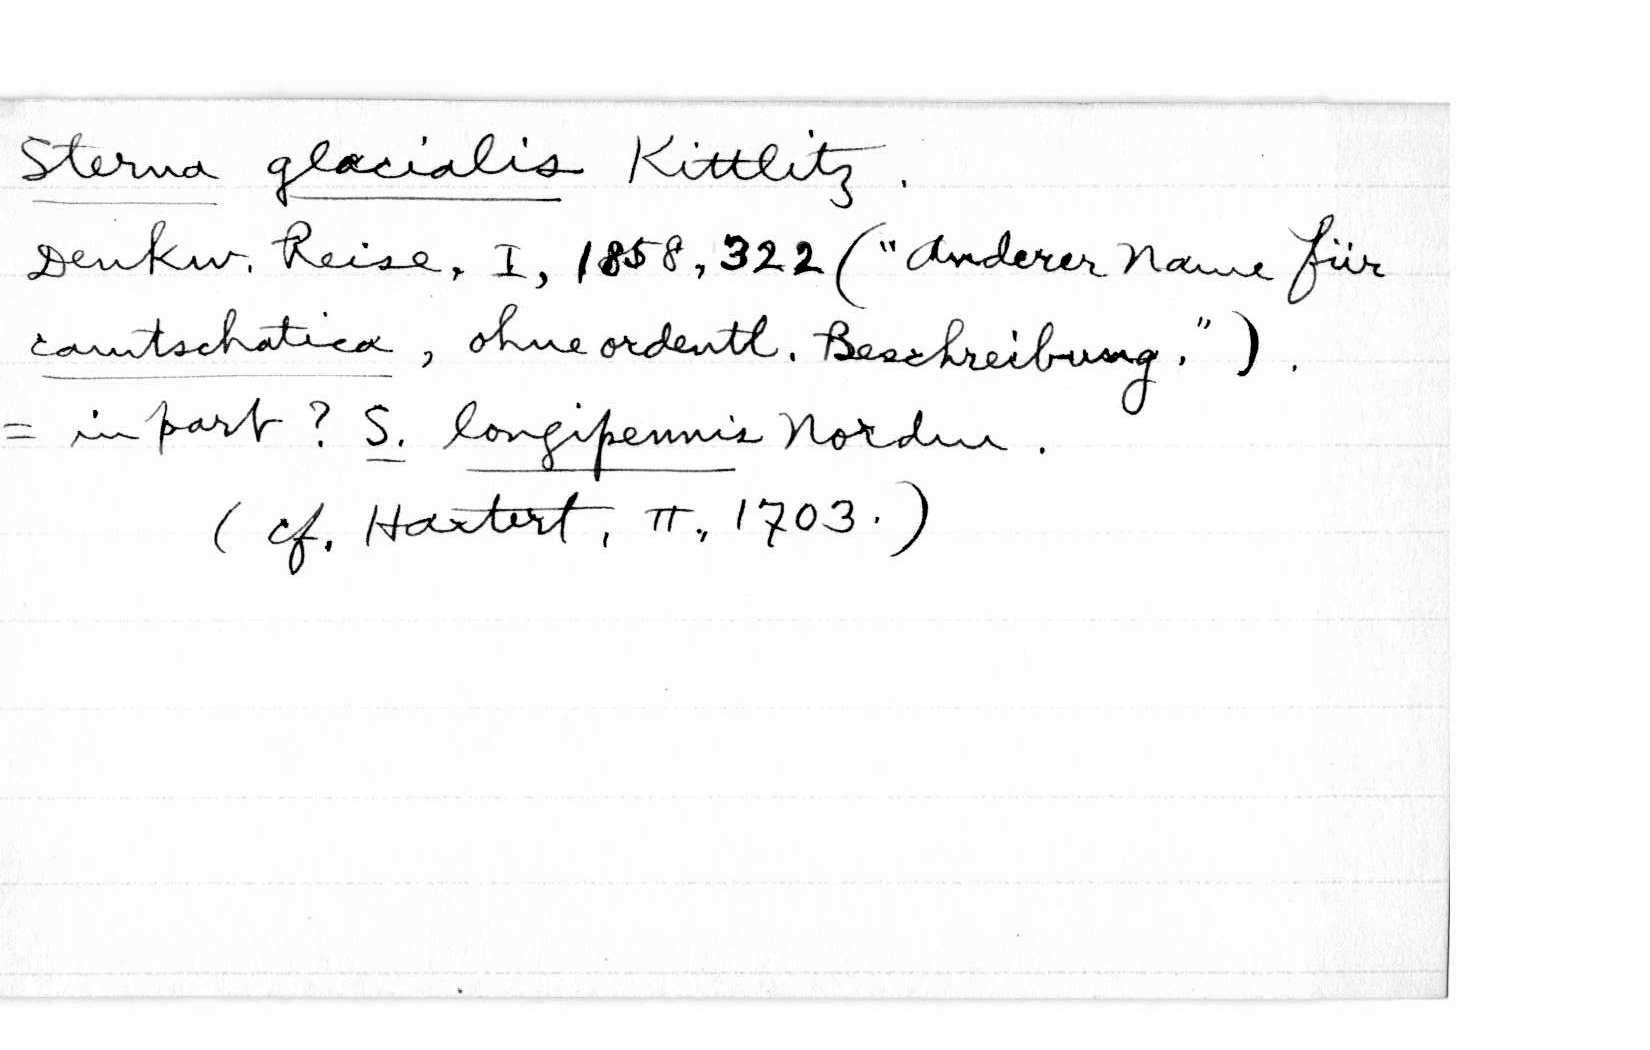 Sterna glacialis Kittlitz.
Denkw. Reise, I, 1858, 322 ("Anderer Name für
camtschatica, ohne ordentl. Beschreibung.").
= in part? S. longipennis Nordm.
(cf. Hartert, II, 1703.)